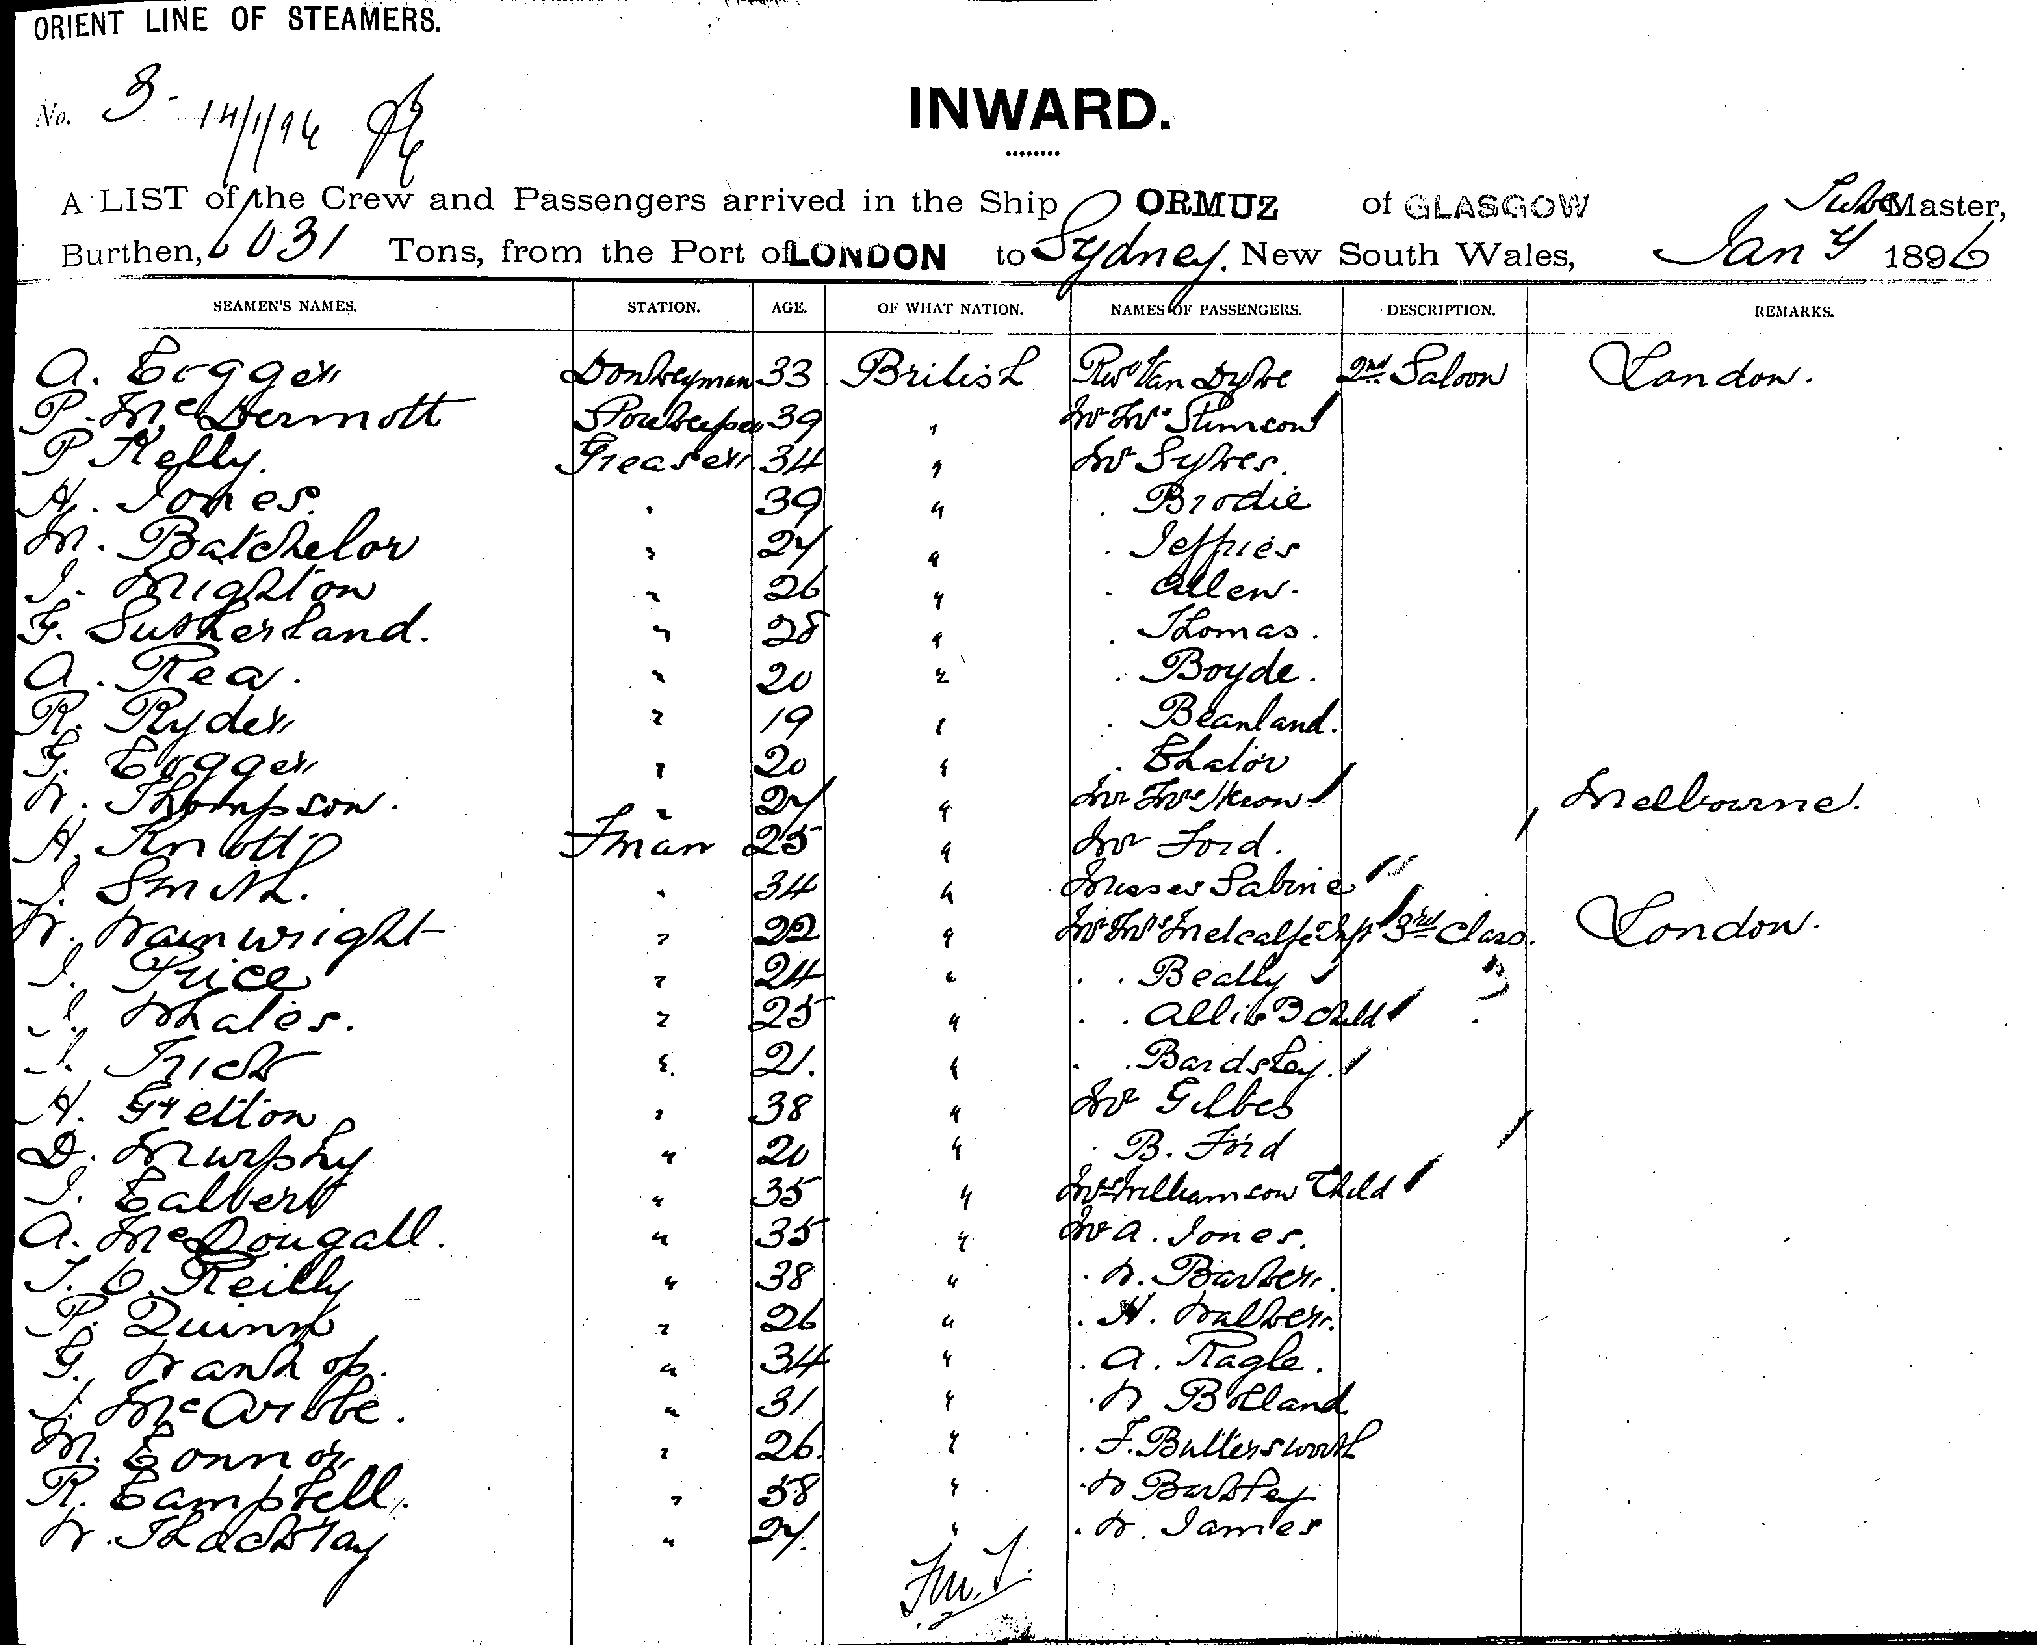 ORIENT LINE OF STEAMERS.
No. 3 - 14/1/96
INWARD.
A LIST of the Crew and Passengers arrived in the Ship ORMUZ of GLASGOW Master,
Burthen, 6031 Tons, from the Port of LONDON to Sydney. New South Wales, Jany 1896
SEAMEN'S NAMES. STATION. AGE. OF WHAT NATION. NAMES OF PASSENGERS. DESCRIPTION. REMARKS.
A. Cogger Donkeyman 33 British Revd Van Dyke 2nd Saloon London.
P. McDermott Storekeeper 39 " Mr Mrs Stimson
P Kelly. Greaser 34 " Mr Sykes.
H. Jones. " 39 " " Brodie
M. Batchelor " 27 " " Jeffries
J. Mighton " 26 " " Allen.
G. Sutherland. " 28 " " Thomas.
A. Rea. " 20 " " Boyde.
R. Ryder " 19 " " Beanland.
G. Cogger " 20 " " Chator
W. Thompson. " 27 " Mr Mrs Heron Melbourne.
H. Knott Fman 25 " Mr Ford.
J. Smith. " 34 " Misses Sabine
W. Wainwright " 22 " Mr Mrs Metcalfe Inft 3rd Class. London.
J. Price " 24 " " " Beally
J. Whales. " 25 " " " 3 Child
J. Trick " 21. " " " Bardsley.
H. Gretton " 38 " Mr Gilbes
D. Murphy " 20 " " B. Ford
J. Calvert " 35 " Mrs Williamson Child
A. McDougall. " 35 " Mr A. Jones.
J. O. Reilly " 38 " " W. Barber.
P. Quinn " 26 " " H. Walker.
G. " 34 " " A. Ragle.
J. " 31 " " W Bolland
M. Connor " 26. " " F. Buttersworth
R. Campbell. " 38 " " W
W. Thackray " 27. " " W. James